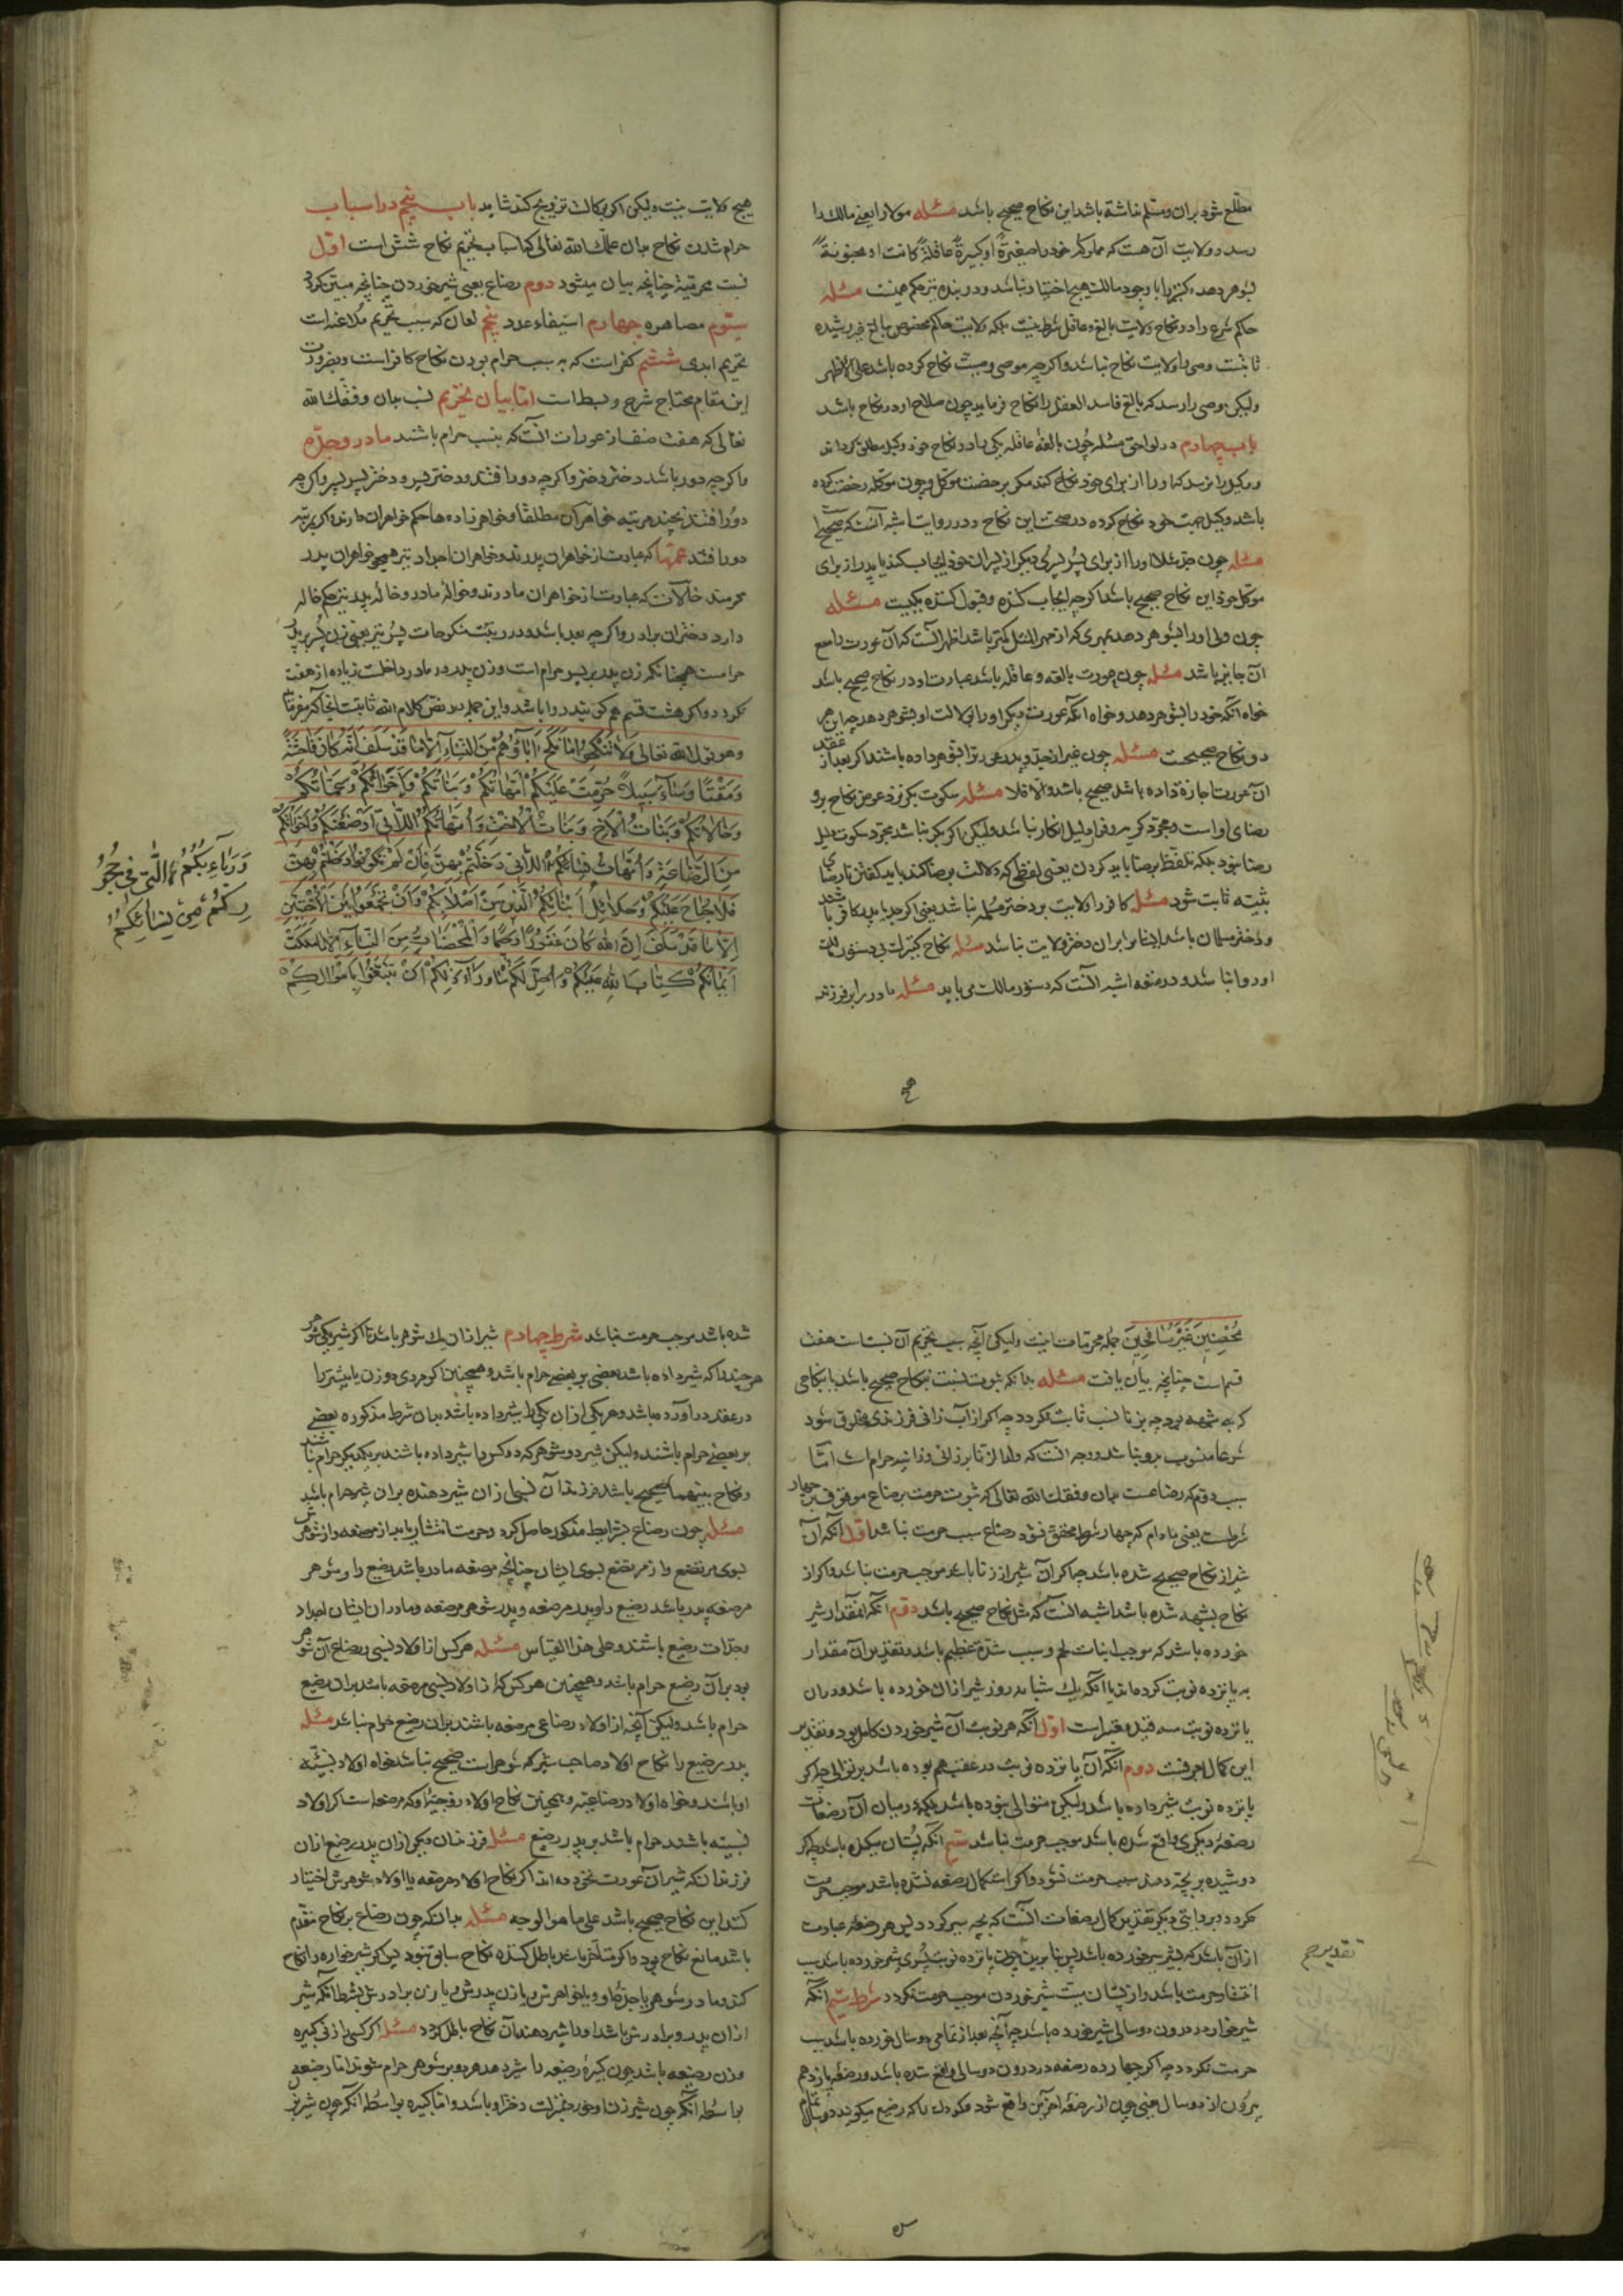 مطلع شود بران و مسلم نداشته باشد این نکاح صحیح باشد مسئله مولا را یعنی مالک را
رسد و ولایت آن هست که مملوکه خود را صغیرةً او کبیرةً عاقلةً کانت او مجنونةً
بشوهر دهد و کنیز را با وجود مالک هیچ اختیار نباشد و در بنده نیز حکم همینست مسئله
حاکم شرع را در نکاح ولایت بالغ و عاقل شرط نیست بلکه ولایت حاکم مخصوص بالغ غیر رشیده
ثابتست وصی را ولایت نکاح نباشد و اگرچه موصی وصیت نکاح کرده باشد علی الاظهر
ولیکن وصی را رسد که بالغ فاسد العقل را نکاح فرماید چون صلاح او در نکاح باشد
باب چهارم در لواحق مسئله چون بالغه عاقله یکی را در نکاح خود وکیل مطلق گرداند
وکیل را نرسد که او را از برای خود نکاح کند مگر برخصت موکل و چون موکله رخصت کرده
باشد و وکیل جهت خود نکاح کرده در صحت این نکاح دو روایت اشبه آنست که صحیح
مسئله چون جد مثلا او را از برای پسر پسر دیگر از پسران خود ایجاب کند یا پدر از برای
موکل خود این نکاح صحیح باشد اگرچه ایجاب کننده و قبول کننده یکیست مسئله
چون ولی او را بشوهر دهد بمهری که از مهر المثل کمتر باشد اظهر آنست که آن عورت را منع
آن جایز باشد مسئله چون عورت بالغه و عاقله باشد عبارت او در نکاح صحیح باشد
خواه آنکه خود را بشوهر دهد و خواه آنکه عورت دیگر او را بوکالت او بشوهر دهد چه این هر
دو نکاح صحیحست مسئله چون غیر از جد و پدر عورتی را بشوهر داده باشند اگر بعد از عقد
آن عورت اجازة داده باشد صحیح باشد و الا فلا مسئله سکوت بکر نزد عرض نکاح برو
رضای اوست و مجرد کریه و فرا دلیل انکار نباشد ولیکن اگر بکر نباشد مجرد سکوت دلیل
رضا نبود بلکه تلفظ برضا باید کردن یعنی لفظی که دلالت بر رضا کند باید گفتن تا رضای
ثیبه ثابت شود مسئله کافر را ولایت بر دختر مسلمه نباشد یعنی اگر جد یا پدر کافر باشند
و دختر مسلمان باشد ایشانرا بران دختر ولایت نباشد مسئله نکاح کنیزک بی دستور مالک
او روا نباشد و در متعه اشبه آنست که دستور مالک می باید مسئله مادر را بر فرزند
هیچ
هیچ ولایت نیست ولیکن اگر بوکالت تزویج کند شاید باب پنجم در اسباب
حرام شدن نکاح بدان علمک الله تعالی که اسباب تحریم نکاح شش است اول
نسبت محرمیة چنانچه بیان میشود دوم رضاع یعنی شیر خوردن چنانچه مبین گردد
سیوم مصاهره چهارم استیفاء عدد پنجم لعان که سبب تحریم ملاعنه است
تحریم ابدی ششم کفر است که به سبب حرام بودن نکاح کافر است و بضرورت
این مقام محتاج شرح و بسط است اما بیان تحریم نسب بدان وفقک الله
تعالی که هفت صنف از عورات آنست که بنسب حرام باشند مادر و جده
و اگرچه دور باشد دختر دختر و اگرچه دور افتند و دختر پسر و دختر پسر پسر و اگرچه
دور افتند بچند مرتبه خواهران مطلقا و خواهرزاده ها حکم خواهران دارند و اگر بمرتبه
دور افتند عمتها که عبارت از خواهران پدرند و خواهران اجداد نیز همچو خواهران پدر
محرمند خالات که عبارت از خواهران مادرند و خواله مادر و خاله پدر نیز حکم خاله
دارد دختران برادر و اگرچه بعید باشد و در رتبت منکوحات پسر نیز یعنی زن پسر بر پدر
حرامست همچنانکه زن پدر بر پسر حرام است و زن پدر در مادر داخلست زیاده از هفت
نگردد و اگر هشت قسم هم گویند روا باشد و این جمله بنص کلام الله ثابتست آنجا که میفرماید
وهو قول الله تعالی وَلَا تَنْكِحُوا مَا نَكَحَ آبَاؤُكُمْ مِنَ النِّسَاءِ إِلَّا مَا قَدْ سَلَفَ إِنَّهُ كَانَ فَاحِشَةً
وَمَقْتًا وَسَاءَ سَبِيلًا حُرِّمَتْ عَلَيْكُمْ أُمَّهَاتُكُمْ وَبَنَاتُكُمْ وَأَخَوَاتُكُمْ وَعَمَّاتُكُمْ
وَخَالَاتُكُمْ وَبَنَاتُ الْأَخِ وَبَنَاتُ الْأُخْتِ وَأُمَّهَاتُكُمُ اللَّاتِي أَرْضَعْنَكُمْ وَأَخَوَاتُكُمْ
مِنَ الرَّضَاعَةِ وَأُمَّهَاتُ نِسَائِكُمُ اللَّاتِي دَخَلْتُمْ بِهِنَّ فَإِنْ لَمْ تَكُونُوا دَخَلْتُمْ بِهِنَّ
فَلَا جُنَاحَ عَلَيْكُمْ وَحَلَائِلُ أَبْنَائِكُمُ الَّذِينَ مِنْ أَصْلَابِكُمْ وَأَنْ تَجْمَعُوا بَيْنَ الْأُخْتَيْنِ
إِلَّا مَا قَدْ سَلَفَ إِنَّ اللَّهَ كَانَ غَفُورًا رَحِيمًا وَالْمُحْصَنَاتُ مِنَ النِّسَاءِ إِلَّا مَا مَلَكَتْ
أَيْمَانُكُمْ كِتَابَ اللَّهِ عَلَيْكُمْ وَأُحِلَّ لَكُمْ مَا وَرَاءَ ذَلِكُمْ أَنْ تَبْتَغُوا بِأَمْوَالِكُمْ
وَرَبَائِبُكُمُ الّٰتِي فِي حُجُو
رِكُمْ مِنْ نِسَائِكُمُ
مُحْصِنِينَ غَيْرَ مُسَافِحِينَ جمله محرمات اینست ولیکن آنچه سبب تحریم آن نسبست هفت
قسم است چنانچه بیان یافت مسئله بدانکه ثبوت نسبت بنکاح صحیح باشد یا بنکاحی
که به شبهه بود چه بزنا نسب ثابت نگردد چه اگر از آب زانی فرزندی مخلوق شود
شرعا منسوب برو نباشد و وجه آنست که ولد الزنا بر زانی و زانیه حرام است اما
سبب دوم که رضاعست بدان وفقک الله تعالی که ثبوت حرمت برضاع موقوف بر چهار
شرطست یعنی مادام که چهار شرط محقق نشود رضاع سبب حرمت نباشد اول آنکه آن
شیر از نکاح صحیح شده باشد چه اگر آن شیر از زنا باشد موجب حرمت نباشد و اگر از
نکاح بشبهه شده باشد اشبه آنست که مثل نکاح صحیح باشد دوم آنکه آنمقدار شیر
خورده باشد که موجب انبات لحم و سبب شدة عظم باشد و تقدیر آن مقدار
به پانزده نوبت کرده اند یا آنکه یک شبانه روز شیر ازان خورده باشد و دران
پانزده نوبت سه قید معتبر است اول آنکه هر نوبت آن شیر خوردن کامل بود و تقدیر
این کمال بعرفست دوم آنکه آن پانزده نوبت در عقب هم بوده باشد بر توالی چه اگر
پانزده نوبت شیر داده باشد ولیکن متوالی نبوده باشد بلکه در میان آن رضعات
رضعه دیگری واقع شده باشد موجب حرمت نباشد سیم آنکه پستان میکیده باشد چه اگر
دوشیده بر بچه دهند سبب حرمت نشود و اگر استکمال رضعه نشده باشد موجب حرمت
نگردد و بروایتی دیگر تقدیر کمال رضعات آنست که بچه سیر گردد پس هر رضعه عبارت
ازان باشد که بشیر سیر خورده باشد پس بنابرین چون پانزده نوبت بسیری شیر خورده باشد سبب
انتشار حرمت باشد و از پستان میت شیر خوردن موجب حرمت نگردد شرط سیم آنکه
شیرخواره در درون دو سالی شیر خورده باشد چه آنچه بعد از تمامی دو سال خورده باشد سبب
حرمت نگردد چه اگر چهارده رضعه در درون دو سالی واقع شده باشد و رضعه پانزدهم
بیرون از دو سال یعنی چون از رضعه آخرین واقع شود کودک را که رضیع میگویند دو سال تمام
تقدیر حم
شده باشد موجب حرمت نباشد شرط چهارم شیر ازان یک شوهر باشد تا اگر شیر یکی شوهر
هر چند را که شیر داده باشد بعضی بر بعضی حرام باشد و همچنین اگر مردی دو زن یا بیشتر را
در عقد در آورده باشد و هر یکی ازان یکی را شیر داده باشد بدان شرط مذکوره بعضی
بر بعضی حرام باشند ولیکن شیر دو شوهر که دو کس را شیر داده باشند بر یکدیگر حرام نباشند
و نکاح بینهما صحیح باشد فرزندان نسبی ازان شیر دهنده بران شیر حرام باشد
مسئله چون رضاع بشرایط مذکور حاصل گردد حرمت انتشار یابد از مرضعه و از شوهرش
بسوی مرتضع و از مرتضع بسوی ایشان چنانچه مرضعه مادر باشد رضیع را و شوهر
مرضعه پدر باشد رضیع را و پدر مرضعه و پدر شوهر مرضعه و مادران ایشان اجداد
و جدات رضیع باشند و علی هذا القیاس مسئله هر کس از اولاد نسبی و رضاعی آن شوهر
بود بران رضیع حرام باشد و همچنین هر کس که از اولاد نسبی مرضعه باشد بران رضیع
حرام باشد ولیکن آنچه از اولاد رضاعی مرضعه باشند بران رضیع حرام نباشد مسئله
پدر رضیع را نکاح اولاد صاحب شیر که شوهر است صحیح نباشد خواه اولاد نسبیه
او باشند و خواه اولاد رضاعیه و همچنین نکاح اولاد زوجه او که مرضعه است اگر اولاد
نسبیه باشند حرام باشد بر پدر رضیع مسئله فرزندان دیگر ازان پدر رضیع ازان
فرزندان که شیر آن عورت نخورده اند اگر نکاح اولاد مرضعه یا اولاد شوهرش اختیار
کنند این نکاح صحیح باشد علی ما هو الوجه مسئله بدانکه چون رضاع بر نکاح متقدم
باشد مانع نکاح بود و اگر متأخر باشد باطل کننده نکاح سابق شود پس اگر شیرخواره را نکاح
کند و مادر شوهر یا جده او و یا خواهرش و یا زن پدرش و یا زن برادرش بشرط آنکه شیر
ازان پدر و برادرش باشد او را شیر دهند آن نکاح باطل گردد مسئله اگر کسی را زنی کبیره
وزن رضیعه باشد چون کبیره رضیعه را شیر دهد هر دو بر شوهر حرام شوند اما رضیعه
بواسطه آنکه چون شیر زن او خورد بمنزلت دختر او باشد و اما کبیره بواسطه آنکه چون شیر بر